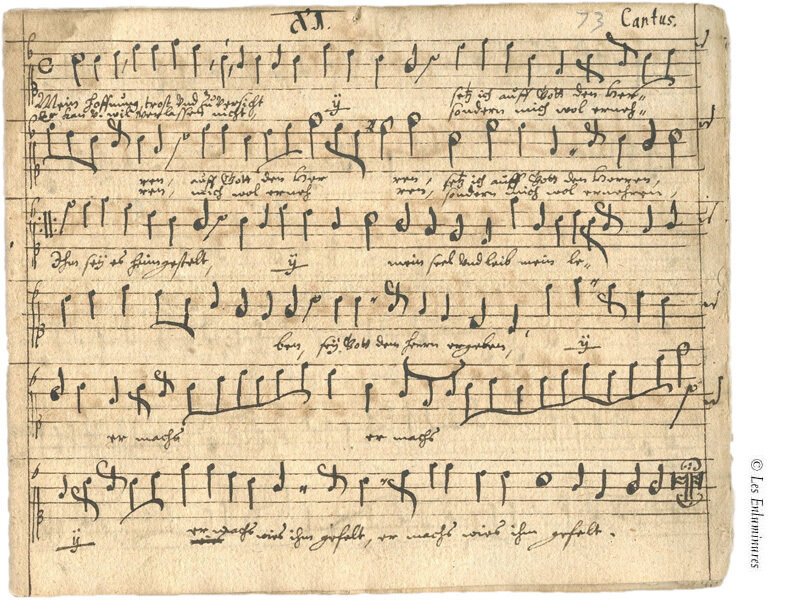 XI.
73 Cantus.
Mein hoffnung, trost vnd zuversicht ÿ setz ich auff Gott den Her-
Er kan v. wil verlassen nicht, sondern mich wol erneh-
ren, auff Gott den Her ren, setz ich auff Gott den Herren,
ren, mich wol erneh ren, sondern mich wol ernehren,
Ihm seÿ es heimgestelt, ÿ mein seel vnd leib mein le-
ben, seÿ Gott dem herrn ergeben, ÿ
er machs er machs
ÿ er machs wies ihm gefelt, er machs wies ihm gefelt.
© Les Enluminures